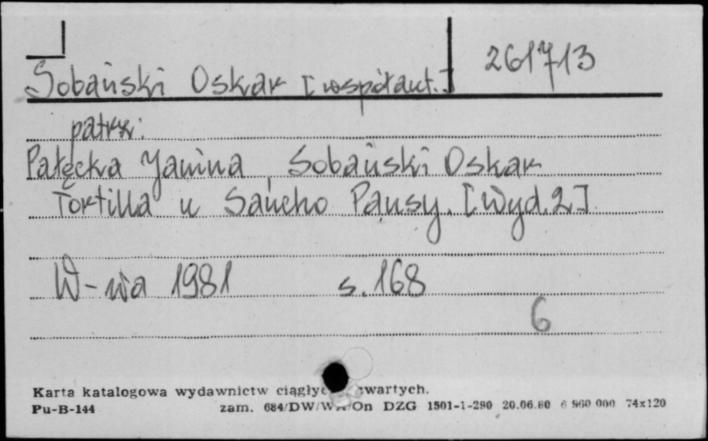 Sobański Oskar [współaut.] 261713
patrz:
Pałęcka Janina, Sobański Oskar
Tortilla u Sancho Pansy. [Wyd. 2]
W-wa 1981 s. 168
6
Karta katalogowa wydawnictw
Pu-B-144 zam. 684/DW/ On DZG 1501-1-290 20.06.80 6 960 000 74x120